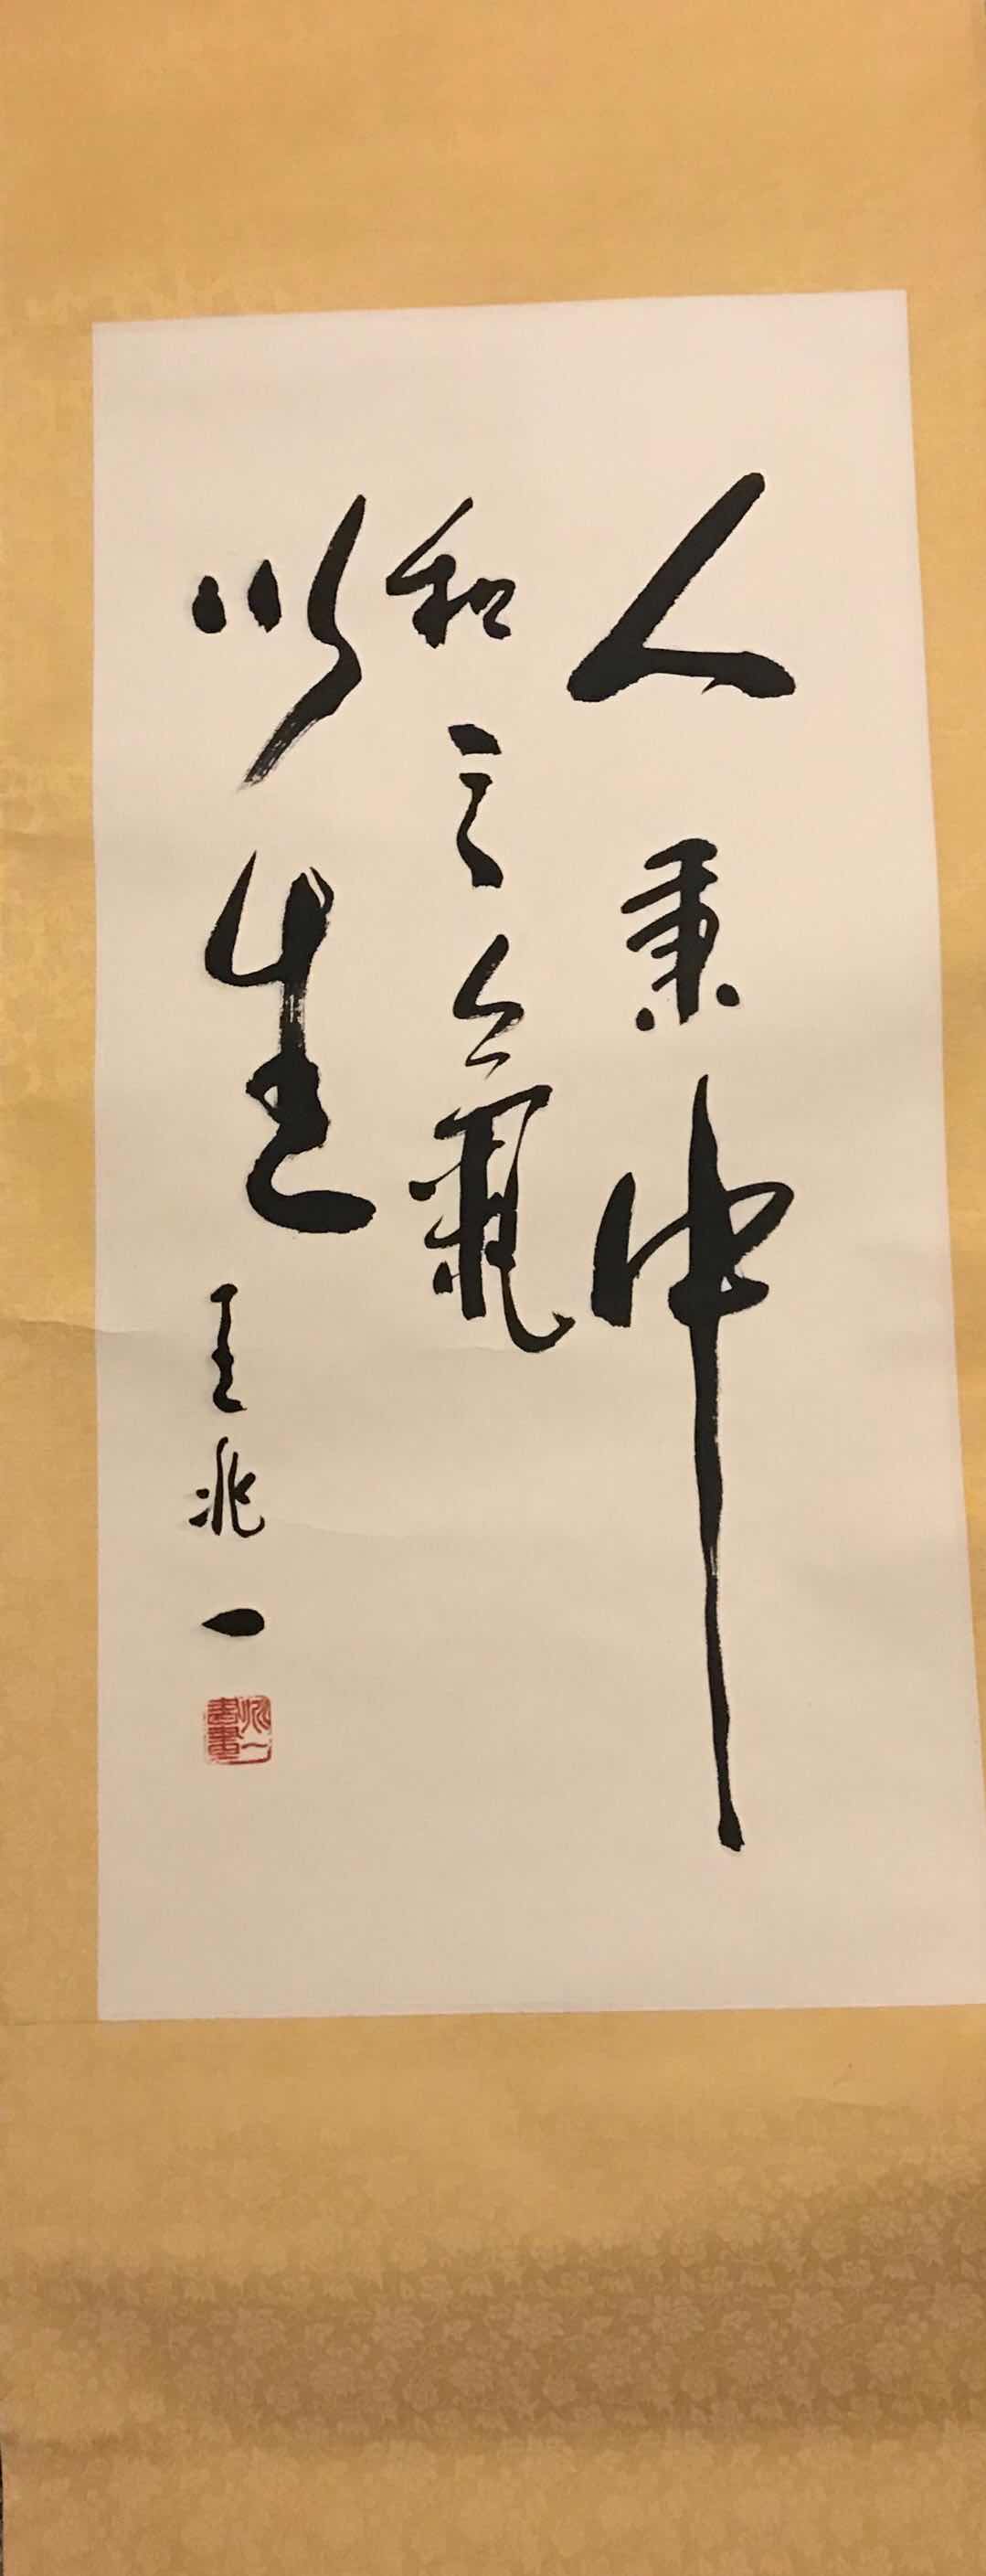 人秉中
和之氣
以生
王兆一
兆一書畫